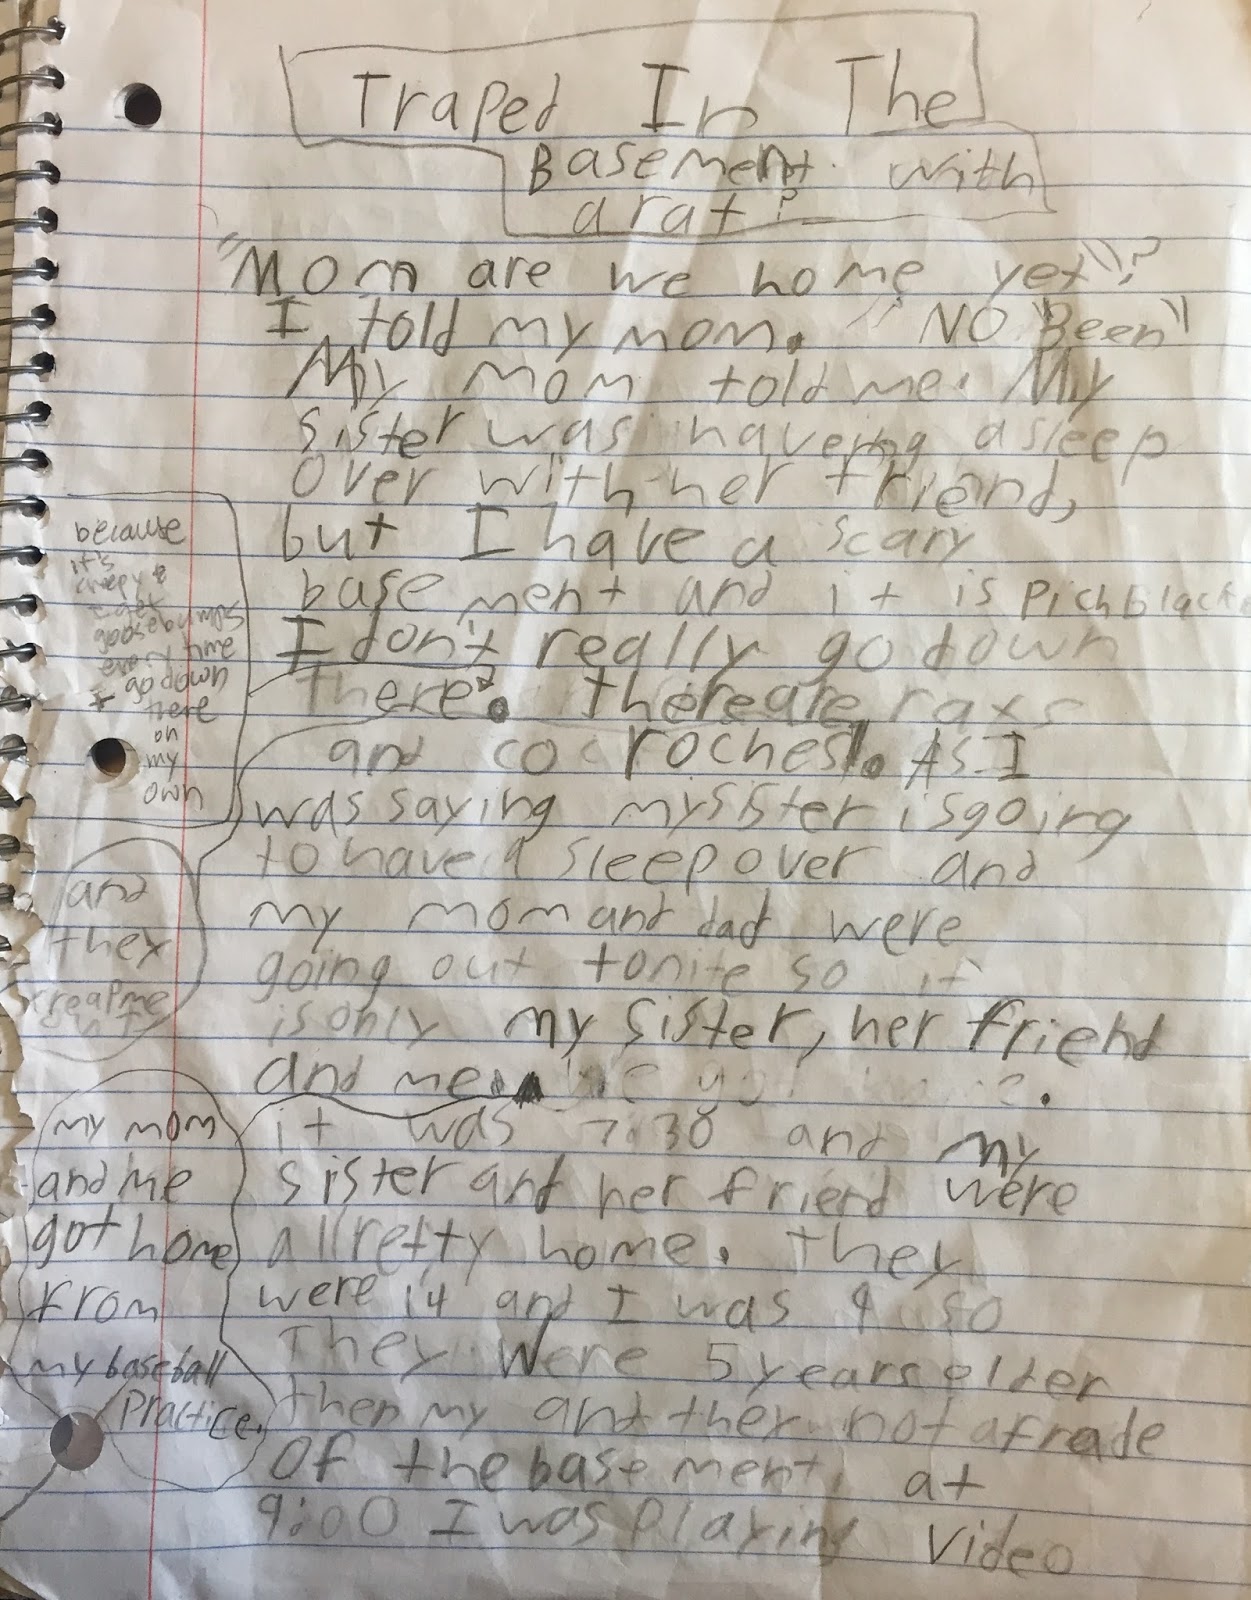 Traped In The
Basement with
a rat?
"Mom are we home yet"?
I told my mom. "NO Been"
My mom told me. My
sister was havering a sleep
over with her friend,
but I have a scary
base ment and it is pichblack
I don't really go down
there. there are rats
and cocroches. As I
was saying my sister is going
to have a sleep over and
my mom and dad were
going out tonite so it
is only my sister, her friend
and me.
it was 7:30 and my
sister and her friend were
allretty home. They
were 14 and I was 9 so
They were 5 years older
then my and they not afrade
of the base ment. at
9:00 I was playing video
because
it's
creepy &
I get
goosebumps
every time
I go down
there
on
my
own
and
they
creap me
out
my mom
and me
got home
from
my baseball
practice.